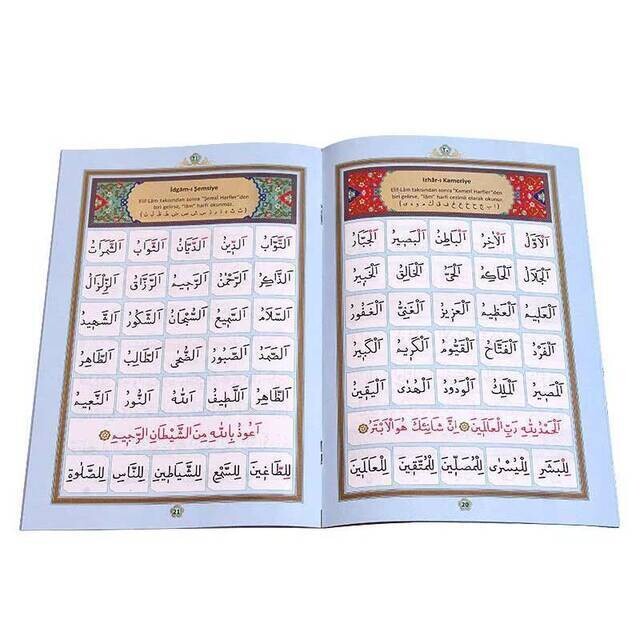 ٢٠
Izhâr-ı Kameriye
Elif-Lâm takısından sonra "Kameri Harfler"den
biri gelirse, "lâm" harfi cezimli olarak okunur.
اَلْاَوَّلُ اَلْاٰخِرُ اَلْبَاطِنُ اَلْبَصِيرُ اَلْجَبَّارُ
اَلْجَلَالُ اَلْحَاكِمُ اَلْحَيُّ اَلْخَالِقُ اَلْخَبِيرُ
اَلْعَلِيمُ اَلْعَظِيمُ اَلْعَزِيزُ اَلْغَنِيُّ اَلْغَفُورُ
اَلْفَرْدُ اَلْفَتَّاحُ اَلْقَيُّومُ اَلْكَرِيمُ اَلْكَبِيرُ
اَلْمَصِيرُ اَلْمَلِكُ اَلْوَدُودُ اَلْهُدٰى اَلْيَقِينُ
اَلْحَمْدُ لِلّٰهِ رَبِّ الْعَالَمِينَ اِنَّ شَانِئَكَ هُوَ الْاَبْتَرُ
لِلْبَشَرِ لِلْيُسْرٰى لِلْمُصَلِّينَ لِلْمُتَّقِينَ لِلْعَالَمِينَ
20
٢١
İdgâm-ı Şemsiye
Elif-Lâm takısından sonra "Şemsî Harfler"den
biri gelirse, "lâm" harfi okunmaz.
(ت ث د ذ ر ز س ش ص ض ط ظ ل ن)
اَلتَّوَّابُ اَلدِّينُ اَلدَّيَّانُ اَلثَّوَابُ اَلثَّمَرَاتُ
اَلذَّاكِرُ اَلرَّحْمٰنُ اَلرَّحِيمُ اَلرَّزَّاقُ اَلزِّلْزَالُ
اَلسَّلَامُ اَلسَّمِيعُ اَلسُّبْحَانُ اَلشَّكُورُ اَلشَّهِيدُ
اَلصَّمَدُ اَلصَّبُورُ اَلضُّحٰى اَلطَّالِبُ اَلطَّاهِرُ
اَلظَّاهِرُ اَللَّطِيفُ اَللّٰهُ اَلنُّورُ اَلنَّعِيمُ
اَعُوذُ بِاللّٰهِ مِنَ الشَّيْطَانِ الرَّجِيمِ
لِلطَّاغِينَ لِلسَّمْعِ لِلشَّيَاطِينِ لِلنَّاسِ لِلصَّلٰوةِ
21